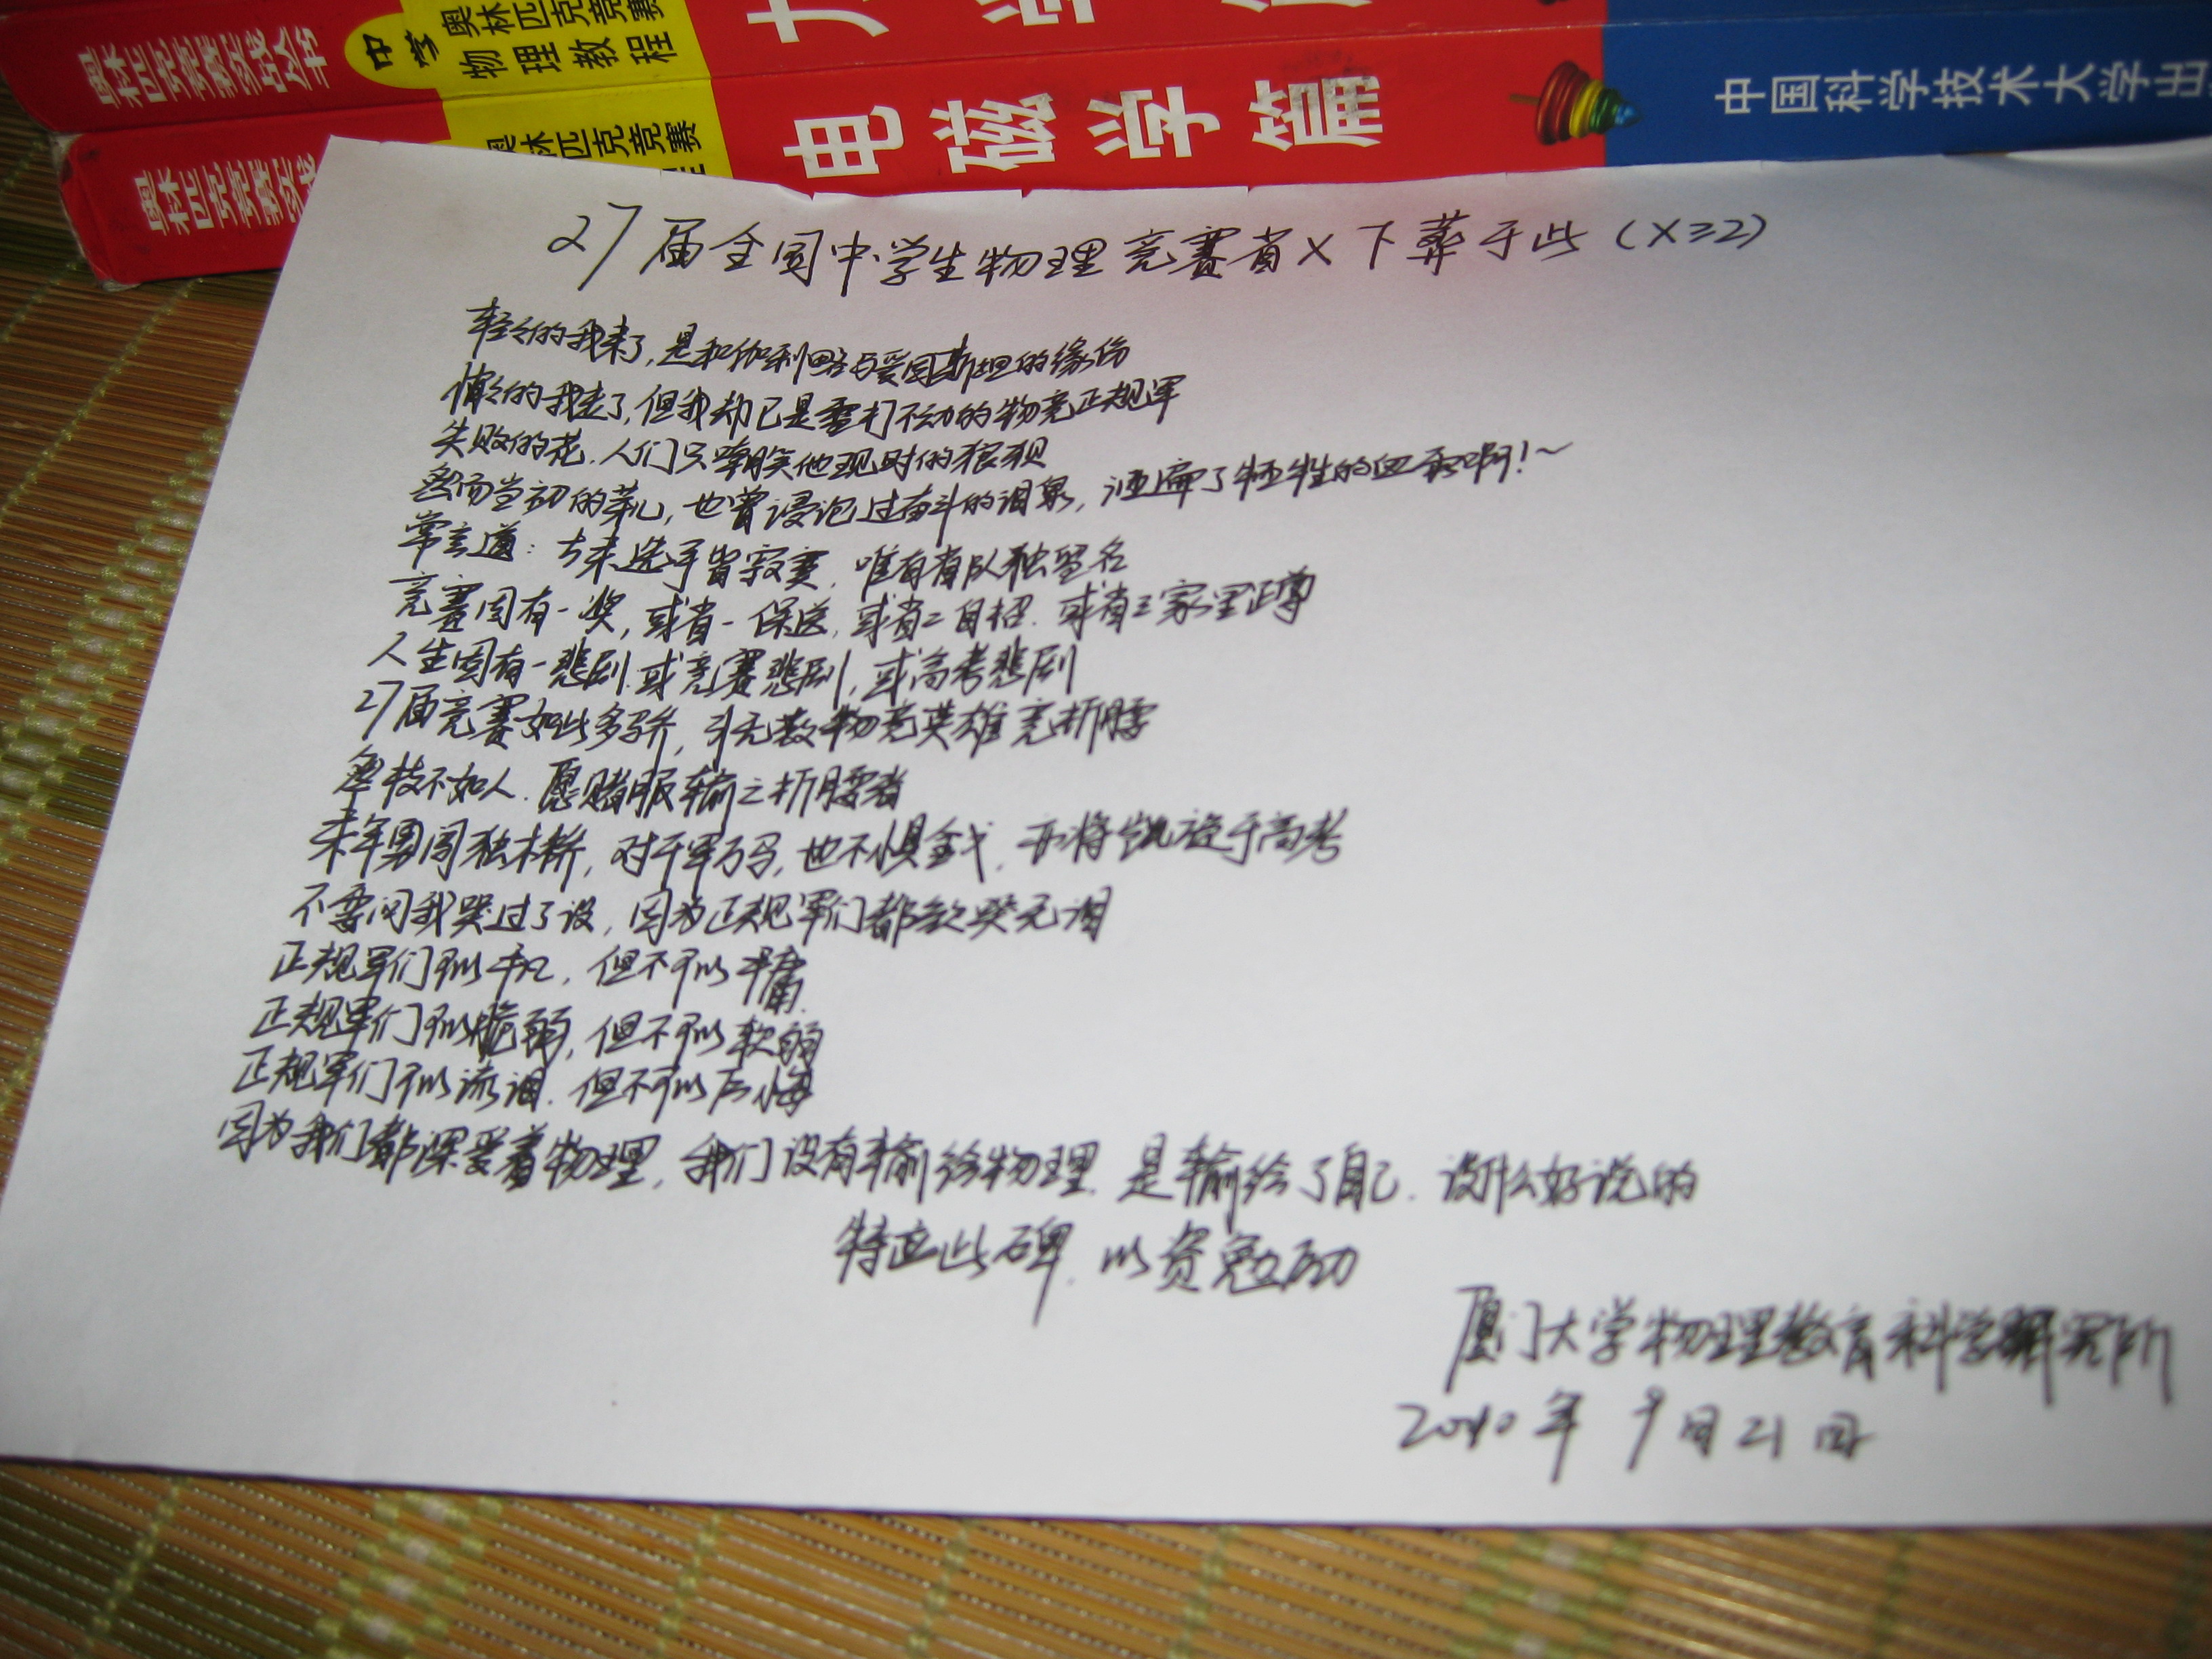 奥林匹克竞赛实战丛书
中学
奥林匹克竞赛
物理教程
力学
奥林匹克竞赛实战
奥林匹克竞赛
电磁学篇
中国科学技术大学出
27届全国中学生物理竞赛省X下葬于此（X≥2）
轻轻的我来了，是和伽利略与爱因斯坦的缘份
悄悄的我走了，但我却已是雷打不动的物竞正规军
失败的花，人们只嘲笑他现时的狼狈
然而当初的芽儿，也曾浸泡过奋斗的泪泉，洒遍了牺牲的血雨啊！~
常言道：古来选手皆寂寞，唯有省队独留名
竞赛固有一奖，或省一保送，或省二自招，或省三家里蹲
人生固有一悲剧，或竞赛悲剧，或高考悲剧
27届竞赛如此多骄，引无数物竞英雄竞折腰
技不如人，愿赌服输之折腰者
来年勇闯独木桥，对千军万马，也不惧金戈，亦将凯旋于高考
不要问我哭过了没，因为正规军们都欲哭无泪
正规军们可以平凡，但不可以平庸
正规军们可以脆弱，但不可以软弱
正规军们可以流泪，但不可以后悔
因为我们都深爱着物理，我们没有输给物理，是输给了自己，没什么好说的
特立此碑，以资勉励
厦门大学物理教育科学研究所
2010年9月21日